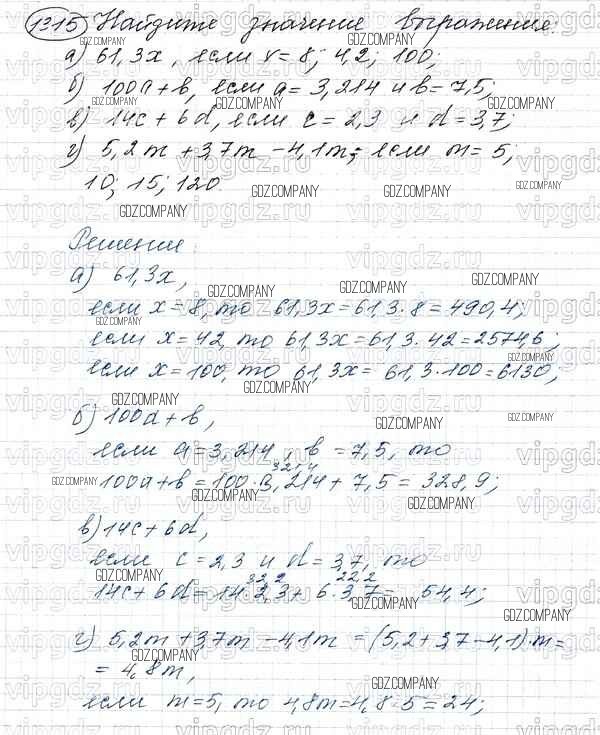 1315 Найдите значение выражения:
а) 61,3x, если x = 8; 42; 100;
б) 100a + b, если a = 3,214 и b = 7,5;
в) 14c + 6d, если c = 2,3 и d = 3,7;
г) 5,2m + 3,7m - 4,1m, если m = 5;
10; 15; 120
Решение:
а) 61,3x,
если x = 8, то 61,3x = 61,3 · 8 = 490,4;
если x = 42, то 61,3x = 61,3 · 42 = 2574,6;
если x = 100, то 61,3x = 61,3 · 100 = 6130;
б) 100a + b,
если a = 3,214, b = 7,5, то
321,4
100a + b = 100 · 3,214 + 7,5 = 328,9;
в) 14c + 6d,
если c = 2,3 и d = 3,7, то
32,2 22,2
14c + 6d = 14 · 2,3 + 6 · 3,7 = 54,4;
г) 5,2m + 3,7m - 4,1m = (5,2 + 3,7 - 4,1) · m =
= 4,8m,
если m = 5, то 4,8m = 4,8 · 5 = 24;
GDZ.COMPANY
vipgdz.ru